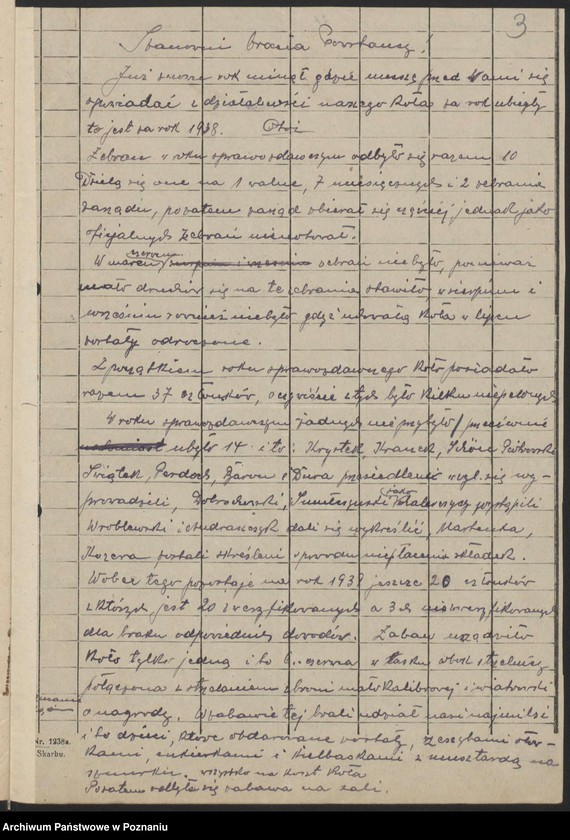 3
Szanowni bracia Powstańcy!
Już znowu rok minął gdzie muszę przed Wami się
spowiadać z działalności naszego Koła za rok ubiegły
to jest za rok 1938. Otóż
Zebrań w roku sprawozdawczym odbyło się razem 10
Dzielą się one na 1 walne, 7 miesięcznych i 2 zebrania
zarządu, pozatem zarząd zbierał się częściej jednak jako
oficjalnych zebrań nienotował.
W marcu, czerwcu zebrań nie było, ponieważ
mało druhów się na te zebrania stawiło, w sierpniu i
wrześniu również niebyło gdyż uchwałą Koła w lipcu
zostały odroczone.
Z początkiem roku sprawozdawczego Koło posiadało
razem 37 członków, oczywiście z tych było kilku
W roku sprawozdawczym żadnych nie przybyło, przeciwnie
ubyło 14 i to: Krystek, Franek,
Świątek, Żarow i Dura przesiedlenie wzgl. się wy-
prowadzili, Dobrochowski, jako wystąpili
Wroblewski i Andraszczyk dali się wykreślić, Martenka,
Kozera zostali skreśleni z powodu niepłacenia składek.
Wobec tego pozostaje na rok 1939 jeszcze członków
z których jest 20 zweryfikowanych a 3ch niezweryfikowanych
dla braku odpowiednich dowodów. Zabaw urządziło
Koło tylko jedną i to 6. czerwca w lasku obok strzelnicy
połączona z strzelaniem z broni małokalibrowej i wiatrówki
o nagrody. W zabawie tej brali udział nasi najmilsi
i to dzieci, które obdarzone zostały, zeszytami ołów-
kami, cukierkami i kiełbaskami z musztardą na
wszystko na koszt Koła
Pozatem odbyła się zabawa na sali.
Nr. 1238a.
Skarbu.
Archiwum Państwowe w Poznaniu